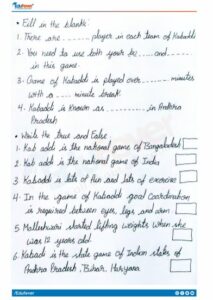 Edufever
• Fill in the blank:
1. There are ........ player in each team of Kabaddi
2. You need to use both your br...... and ......
in this game.
3. Game of Kabaddi is played over ....... minutes
with a ..... minute break
4. Kabaddi is known as ........... in Andhra
Pradesh
• Write the True and False
1. Kab addi is the national game of Bangladesh
2. Kab addi is the national game of India
3. Kabaddi is lots of fun and lots of exercise
4. In the game of Kabaddi good Coordination
is required between eyes, legs and arm
5. Malleshwari started lifting weights when she
was 12 years old.
6. Kabadi is the state game of Indian states of
Andhra Pradesh, Bihar, Haryana
/Edufever